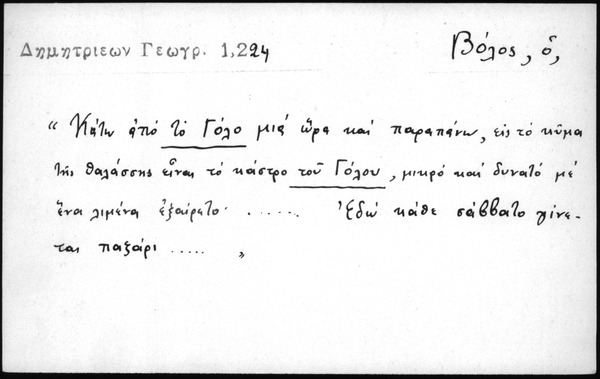 Δημητριεων Γεωγρ. 1,224
Βόλος, ὁ,
“ Κάτω ἀπό τὸ Γόλο μιά ὥρα καί παραπάνω, εἰς τό κῦμα
τῆς θαλάσσης εἶναι τό κάστρο τοῦ Γόλου, μικρό καί δυνατό μέ
ἕνα λιμένα ἐξαίρετο· ...... Ἐδώ κάθε σάββατο γίνε-
ται παζάρι ..... „